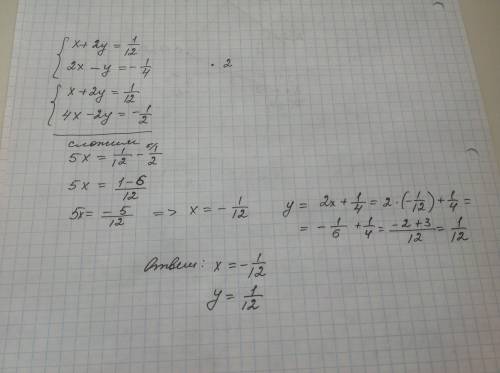 { x + 2y = 1/12
2x - y = - 1/4 · 2
{ x + 2y = 1/12
4x - 2y = - 1/2
сложим
5x = 1/12 - 6/ 1/2
5x = (1-6)/12
5x = -5/12 => x = - 1/12
y = 2x + 1/4 = 2 · (- 1/12) + 1/4 =
= - 1/6 + 1/4 = (-2+3)/12 = 1/12
Ответ: x = - 1/12
y = 1/12